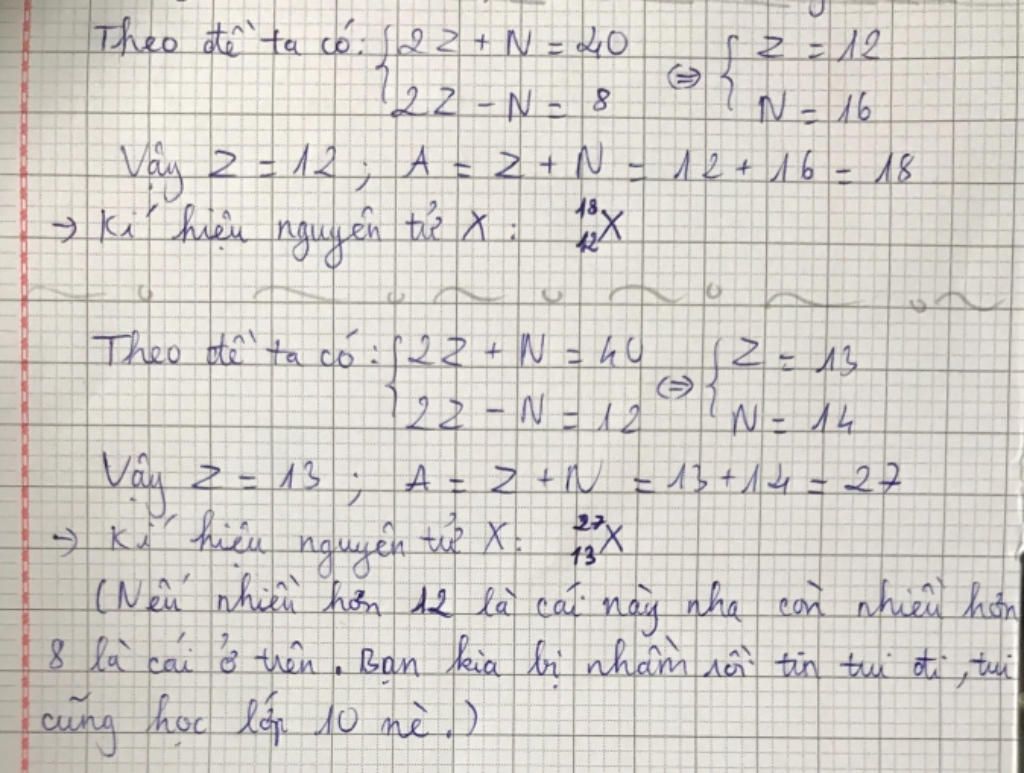 Theo đề ta có: { 2Z + N = 40 ⇔ { Z = 12
2Z - N = 8 N = 16
Vậy Z = 12 ; A = Z + N = 12 + 16 = 18
→ Kí hiệu nguyên tử X : ¹⁸₁₂X
Theo đề ta có : { 2Z + N = 40 ⇔ { Z = 13
2Z - N = 12 N = 14
Vậy Z = 13 ; A = Z + N = 13 + 14 = 27
→ Kí hiệu nguyên tử X : ²⁷₁₃X
(Nếu nhiều hơn 12 là cái này nha còn nhiều hơn
8 là cái ở trên. Bạn kia bị nhầm rồi tin tui đi, tui
cũng học lớp 10 nè.)